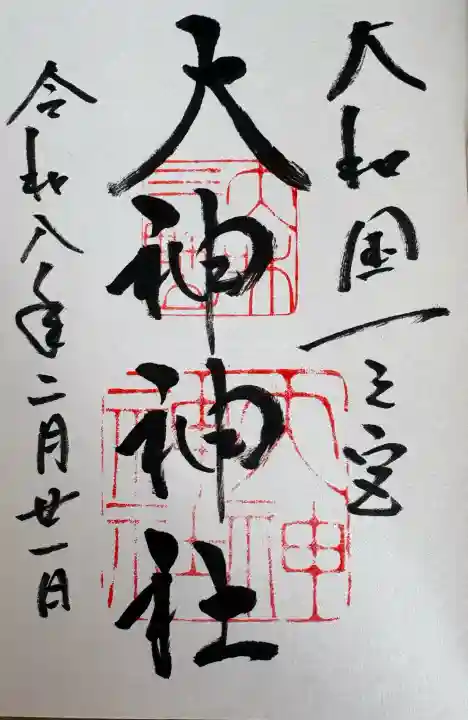 大和国一之宮
大神神社
令和八年二月廿一日
大神神社